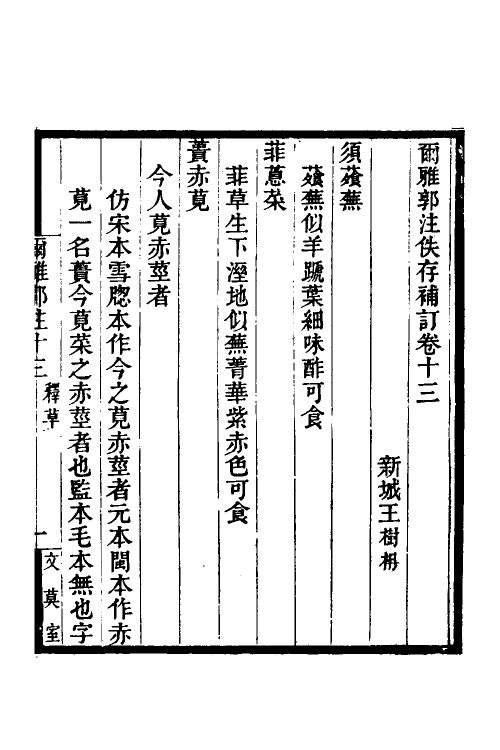 爾雅郭注佚存補訂卷十三
新城王樹枏
須薞蕪
薞蕪似羊蹏葉細味酢可食
菲蒠菜
菲草生下溼地似蕪菁華紫赤色可食
蕢赤莧
今人莧赤莖者
仿宋本雪牕本作今之莧赤莖者元本閩本作赤
莧一名蕢今莧菜之赤莖者也監本毛本無也字
爾雅郭注十三 釋草
一
文莫室